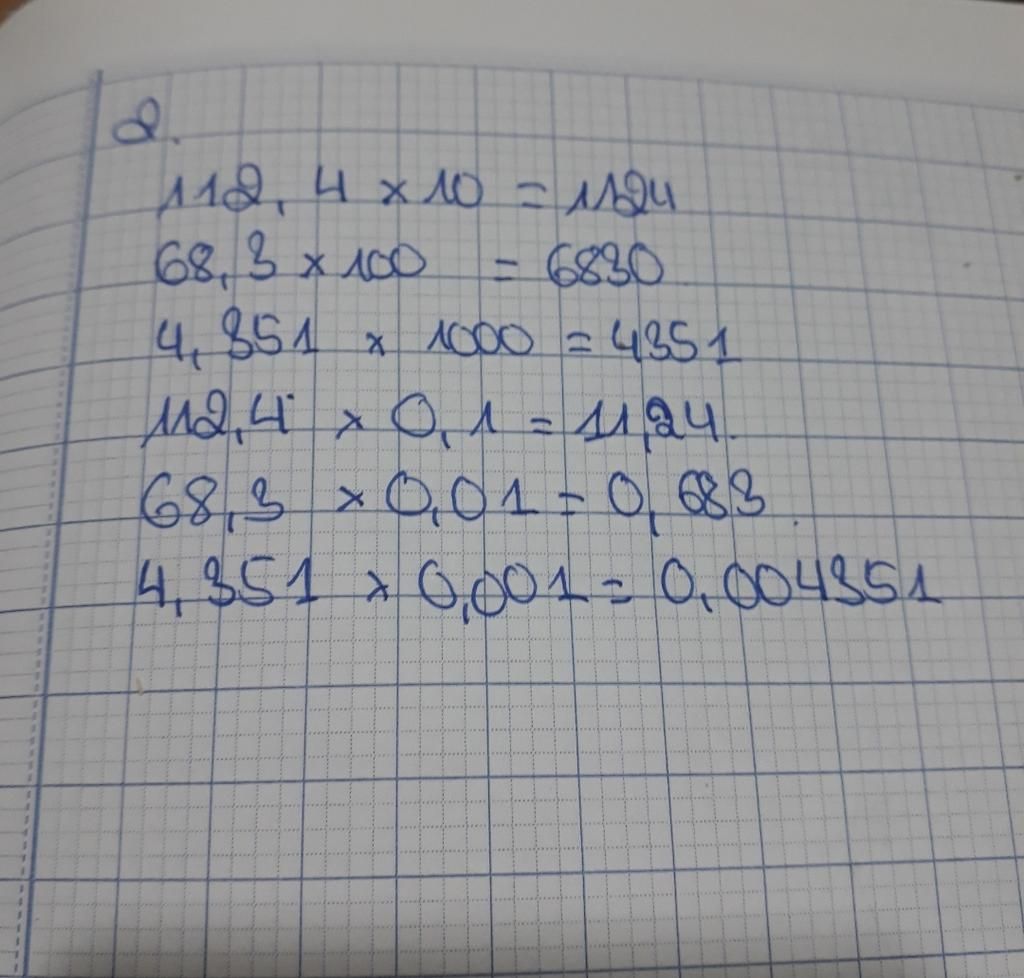 2.
112,4 × 10 = 1124
68,3 × 100 = 6830
4,351 × 1000 = 4351
112,4 × 0,1 = 11,24
68,3 × 0,01 = 0,683
4,351 × 0,001 = 0,004351